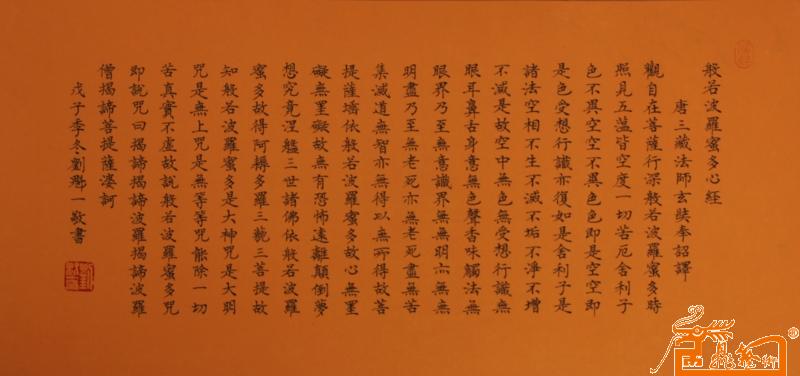 般若波羅蜜多心経
唐三藏法師玄奘奉詔譯
觀自在菩薩行深般若波羅蜜多時
照見五蘊皆空度一切苦厄舍利子
色不異空空不異色色即是空空即
是色受想行識亦復如是舍利子是
諸法空相不生不滅不垢不淨不增
不減是故空中無色無受想行識無
眼耳鼻舌身意無色聲香味觸法無
眼界乃至無意識界無無明亦無無
明盡乃至無老死亦無老死盡無苦
集滅道無智亦無得以無所得故菩
提薩埵依般若波羅蜜多故心無罣
礙無罣礙故無有恐怖遠離顛倒夢
想究竟涅槃三世諸佛依般若波羅
蜜多故得阿耨多羅三藐三菩提故
知般若波羅蜜多是大神咒是大明
咒是無上咒是無等等咒能除一切
苦真實不虛故說般若波羅蜜多咒
即說咒曰揭諦揭諦波羅揭諦波羅
僧揭諦菩提薩婆訶
戊子季冬劉一敬書